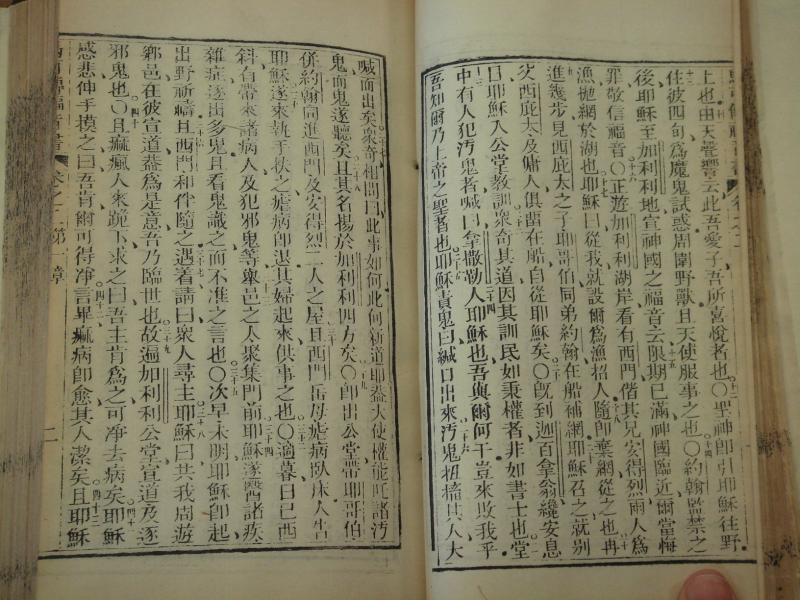 上也由天聲響云此吾愛子吾所喜悅者也○聖神卽引耶穌往野
住彼四旬爲魔鬼試惑周圍野獸且天使服事之也○約翰監禁之
後耶穌至加利利地宣神國之福音云限期已滿神國臨近爾當悔
罪敬信福音○正遊加利利湖岸看有西門偕其兄安得烈兩人爲
漁拋網於湖也耶穌曰從我就設爾爲漁招人隨卽棄網從之也再
進幾步見西庇太之子耶哥伯同弟約翰在船補網耶穌召之就別
父西庇太及傭人俱留在船自從耶穌矣○旣到迦百拿翁纔安息
日耶穌入公堂教訓衆奇其道因其訓民如秉權者非如書士也堂
中有人犯汚鬼者喊曰拿撒勒人耶穌也吾與爾何干豈來敗我乎
吾知爾乃上帝之聖者也耶穌責鬼曰緘口出來汚鬼扭搐其人大
喊而出矣衆奇相問曰此事如何此何新道耶蓋大使權能吒諸汚
鬼而鬼遂聽矣且其名揚於加利利四方矣○卽出公堂帶耶哥伯
併約翰同進西門及安得烈二人之屋且西門岳母瘧病臥床人告
耶穌遂來執手扶之瘧病卽退其婦起來供事之也○適暮日已西
斜自帶來諸病人及犯邪鬼等舉邑之人聚集門前耶穌遂醫諸疾
雜症逐出多鬼且看鬼識之而不准之言也○次早未明耶穌卽起
出野祈禱且西門和伴隨之遇着請曰衆人尋主耶穌曰共我周遊
鄕邑在彼宣道蓋爲是意吾乃臨世也故遍加利利公堂宣道及逐
邪鬼也○且痲瘋人來跪下求之曰吾主肯爲之可凈去病矣耶穌
感悲伸手摸之曰吾肯爾可得凈言畢痲病卽愈其人潔矣且耶穌